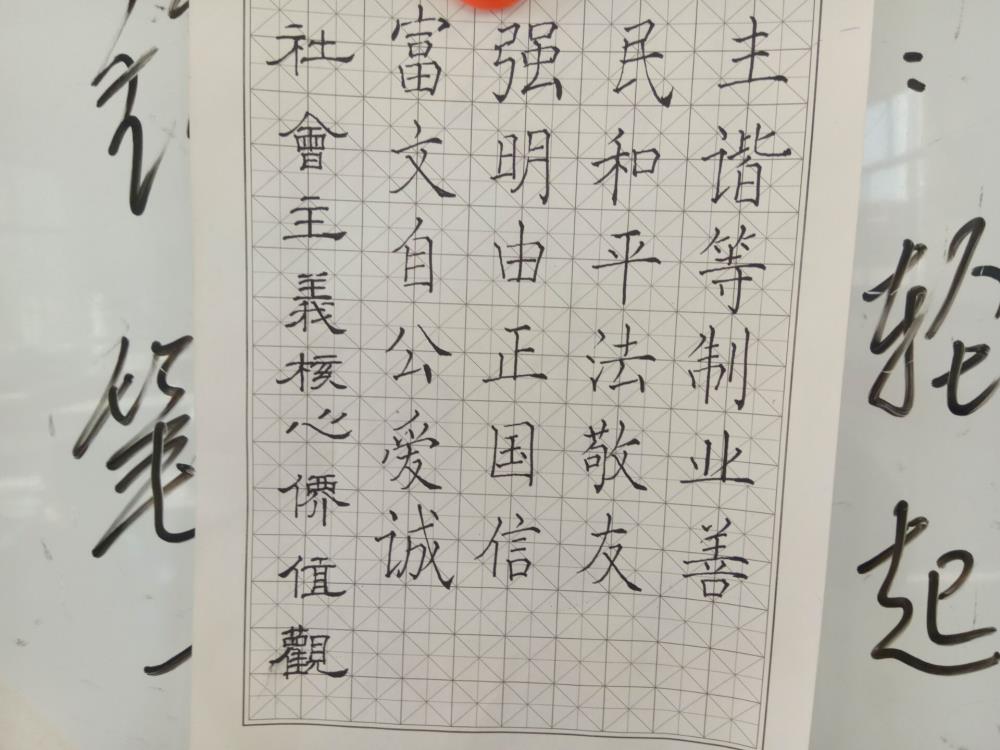 社會主義核心價值觀
富强民主
文明和谐
自由平等
公正法制
爱国敬业
诚信友善
起